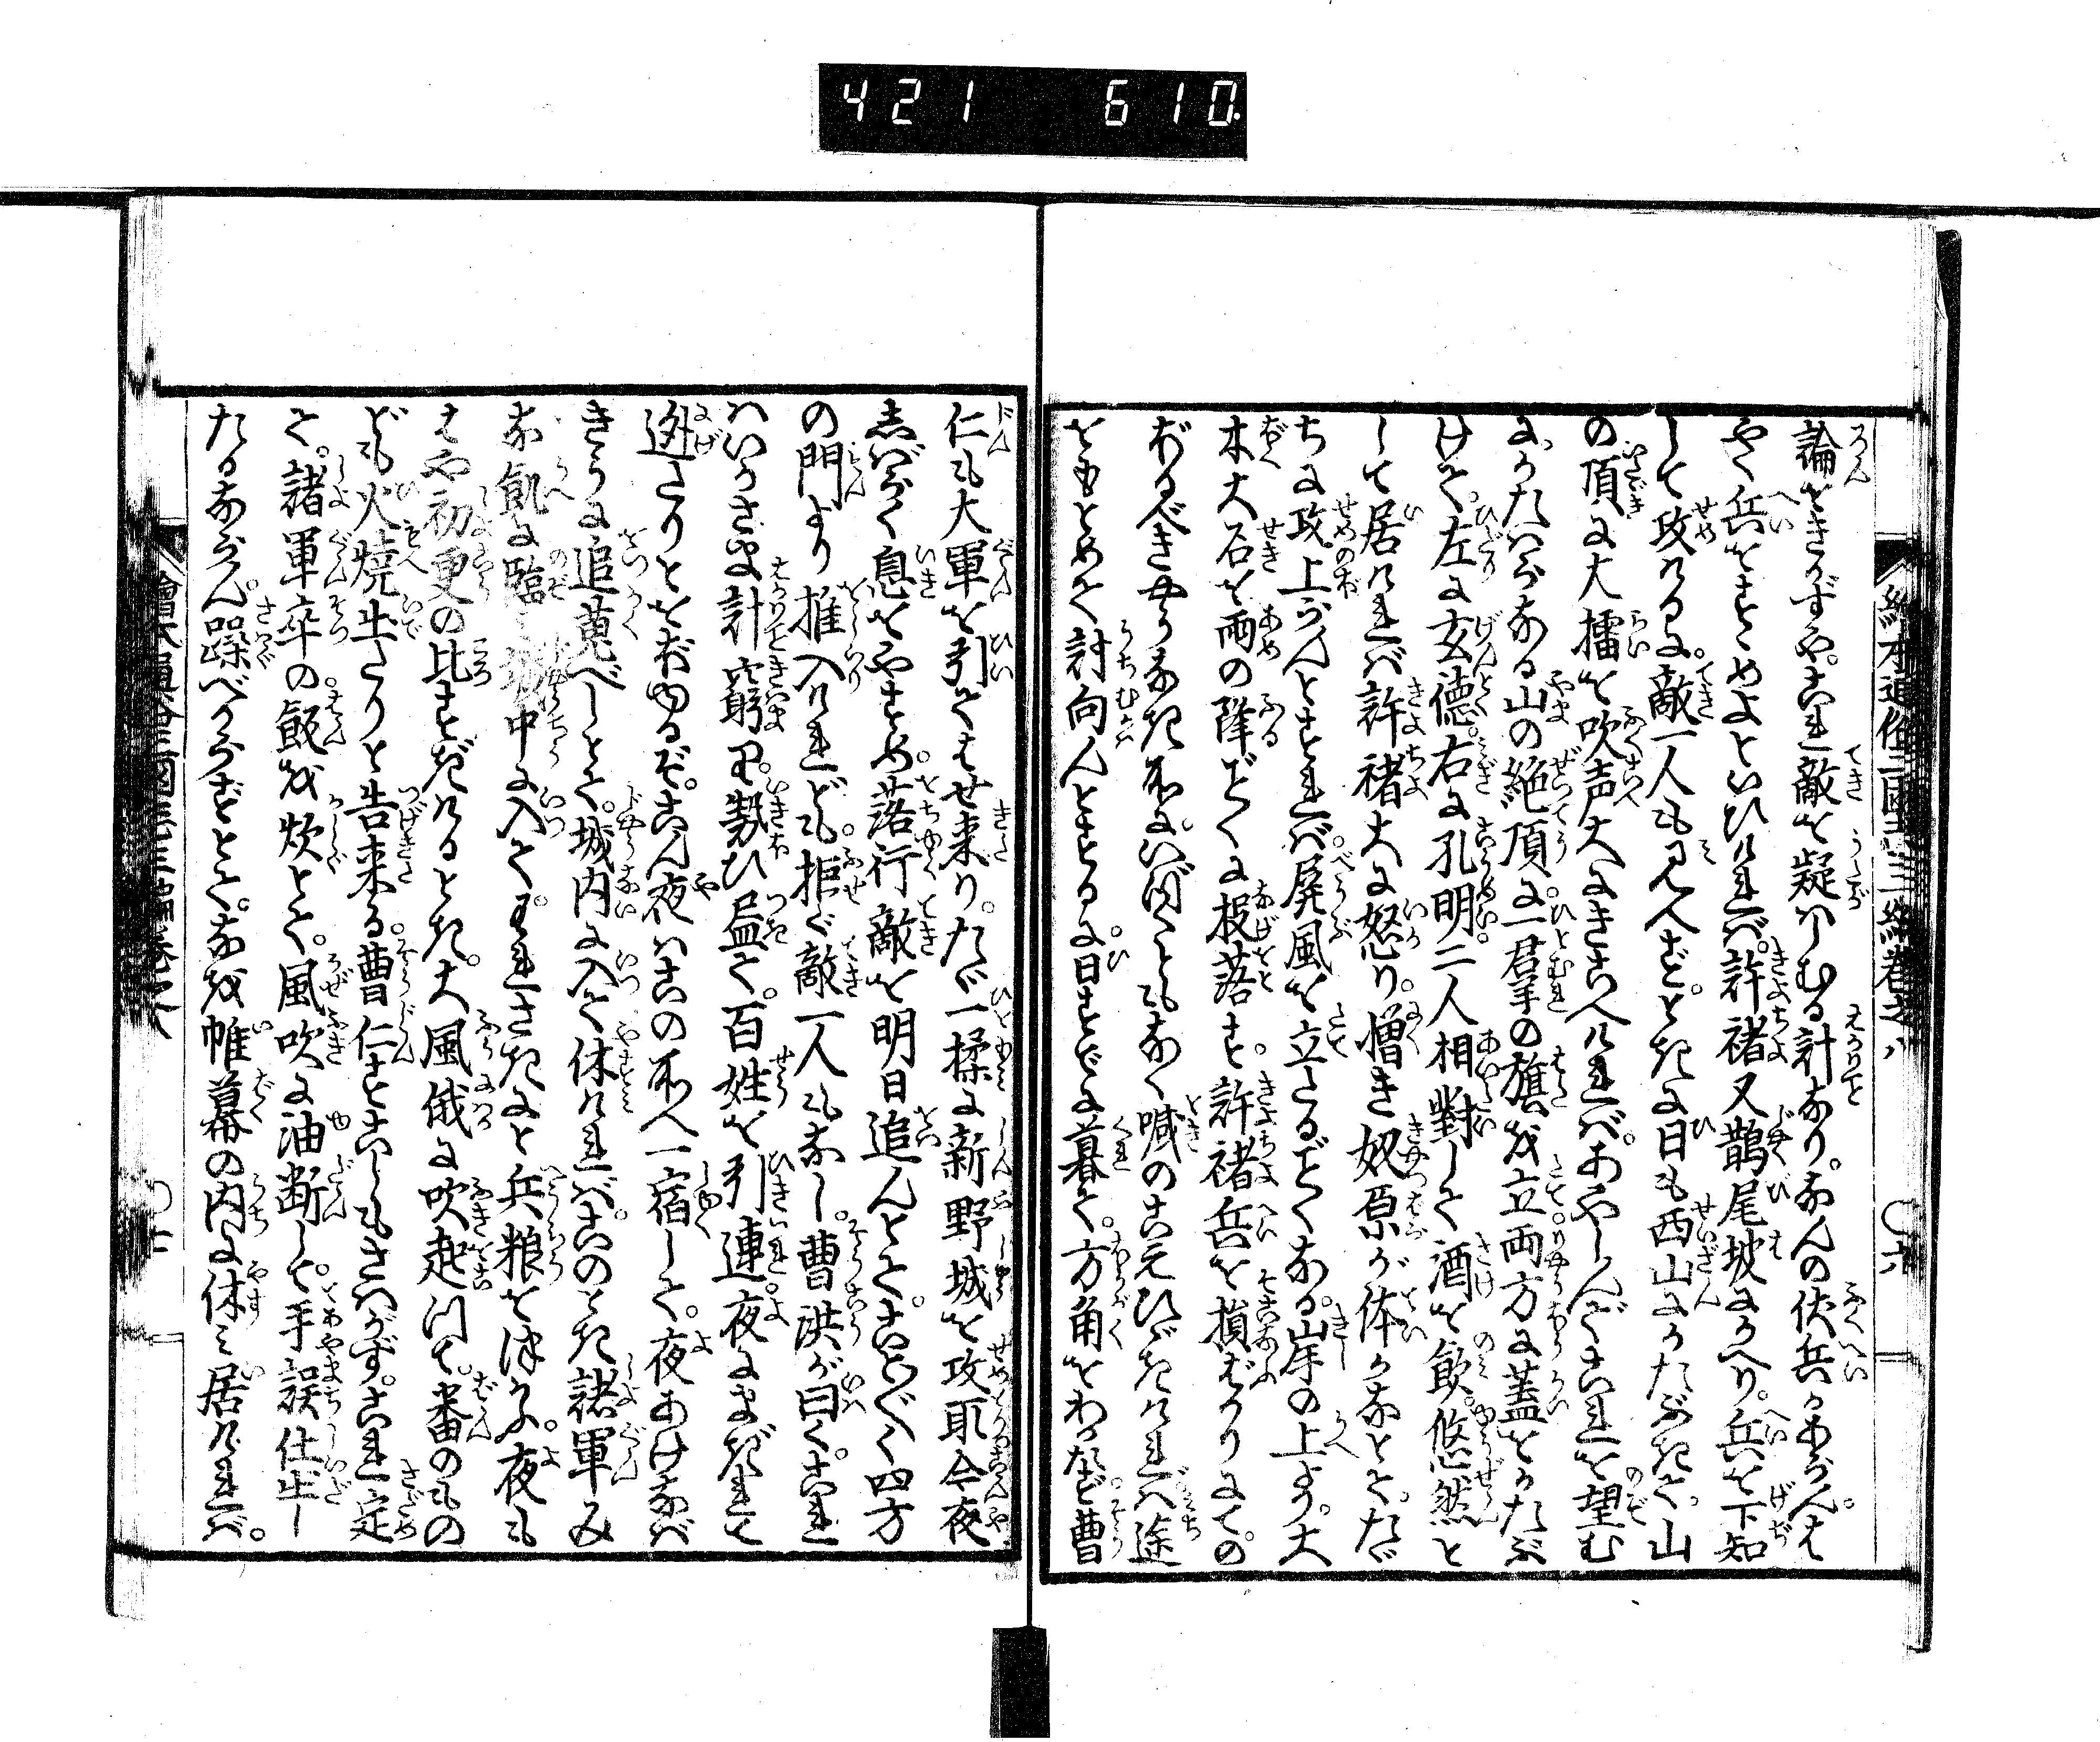 421 610
繪本通俗三國志三編卷之八
〇六
論をきかずや。これ敵を疑はしむる計なり。なんの伏兵かあらん。は
やく兵をすゝめよといひければ。許褚又鵲尾坡にかへり。兵を下知
して攻けるに。敵一人も見へず。ときに日も西山にかたぶきて。山
の頂に大擂を吹声大にきこへければ。あやしんでこれを望む
に。かたはらなる山の絶頂に。一群の旗を立。両方に蓋をかたぶ
けて。左に玄德。右に孔明二人相對して酒を飲。悠然と
して居ければ許褚大に怒り。憎き奴原が体かなとて。たゞ
ちに攻上らんとすれば。屏風を立たるごとくなる。山岸の上より。大
木大石を雨の降ごとくに投落す。許褚兵を損ずばかりにての
ぼるべきやうなき所に。いづくともなく喊のこゑひゞきければ。途
をもとめて討向んとするに。日すでに暮て。方角をわかたず。曹
仁も大軍を引てはせ来り。たゞ一揉に新野城を攻取。今夜
しばらく息をやすめ。落行敵を明日追んとて。こと〴〵く四方
の門より推入けれども。拒ぐ敵一人もなし。曹洪が曰く。これ
はいかさま計窮り。勢ひ盡て。百姓を引連。夜にまぎれて
迯さりとをぼゆるぞ。こん夜はこの所へ一宿して。夜あけなば
きうに追蒐べしとて。城内に入て休ければ。このとき諸軍み
な飢に臨み。城中に入て。われさきにと兵粮をはかふ。夜も
はや初更の比すぎけるとき。大風俄に吹起つて。番のもの
ども火焼出たりと告来る。曹仁すこしもさはがず。これ定
て。諸軍卒の。飯を炊とて。風吹に油断して。手誤仕出し
たるならん。躁べからずとて。なを帷幕の内に休み居ければ。